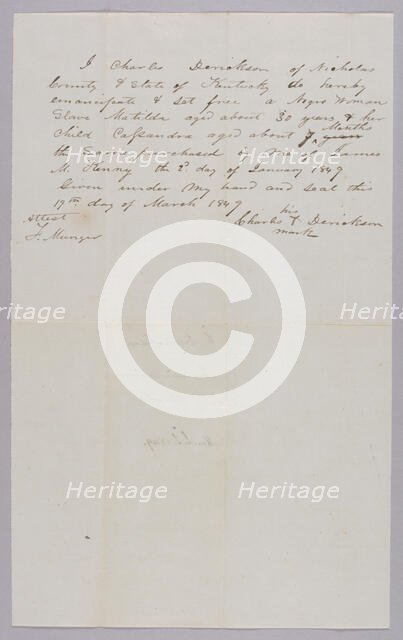 I Charles Derickson of Nicholas
County & State of Kentucky do hereby
emancipate & set free a Negro Woman
Slave Matilda aged about 30 years & her
Child Cassandra aged about 7 Months
the purchased James
M. the 2d day of January 1849
Given under My hand and seal this
19th day of March 1849
Attest
F. Munger
his
Charles Derickson
mark
Heritage
Heritage
Heritage
Heritage
Heritage
Heritage
Images
Images
Images
Images
Images
Images
©